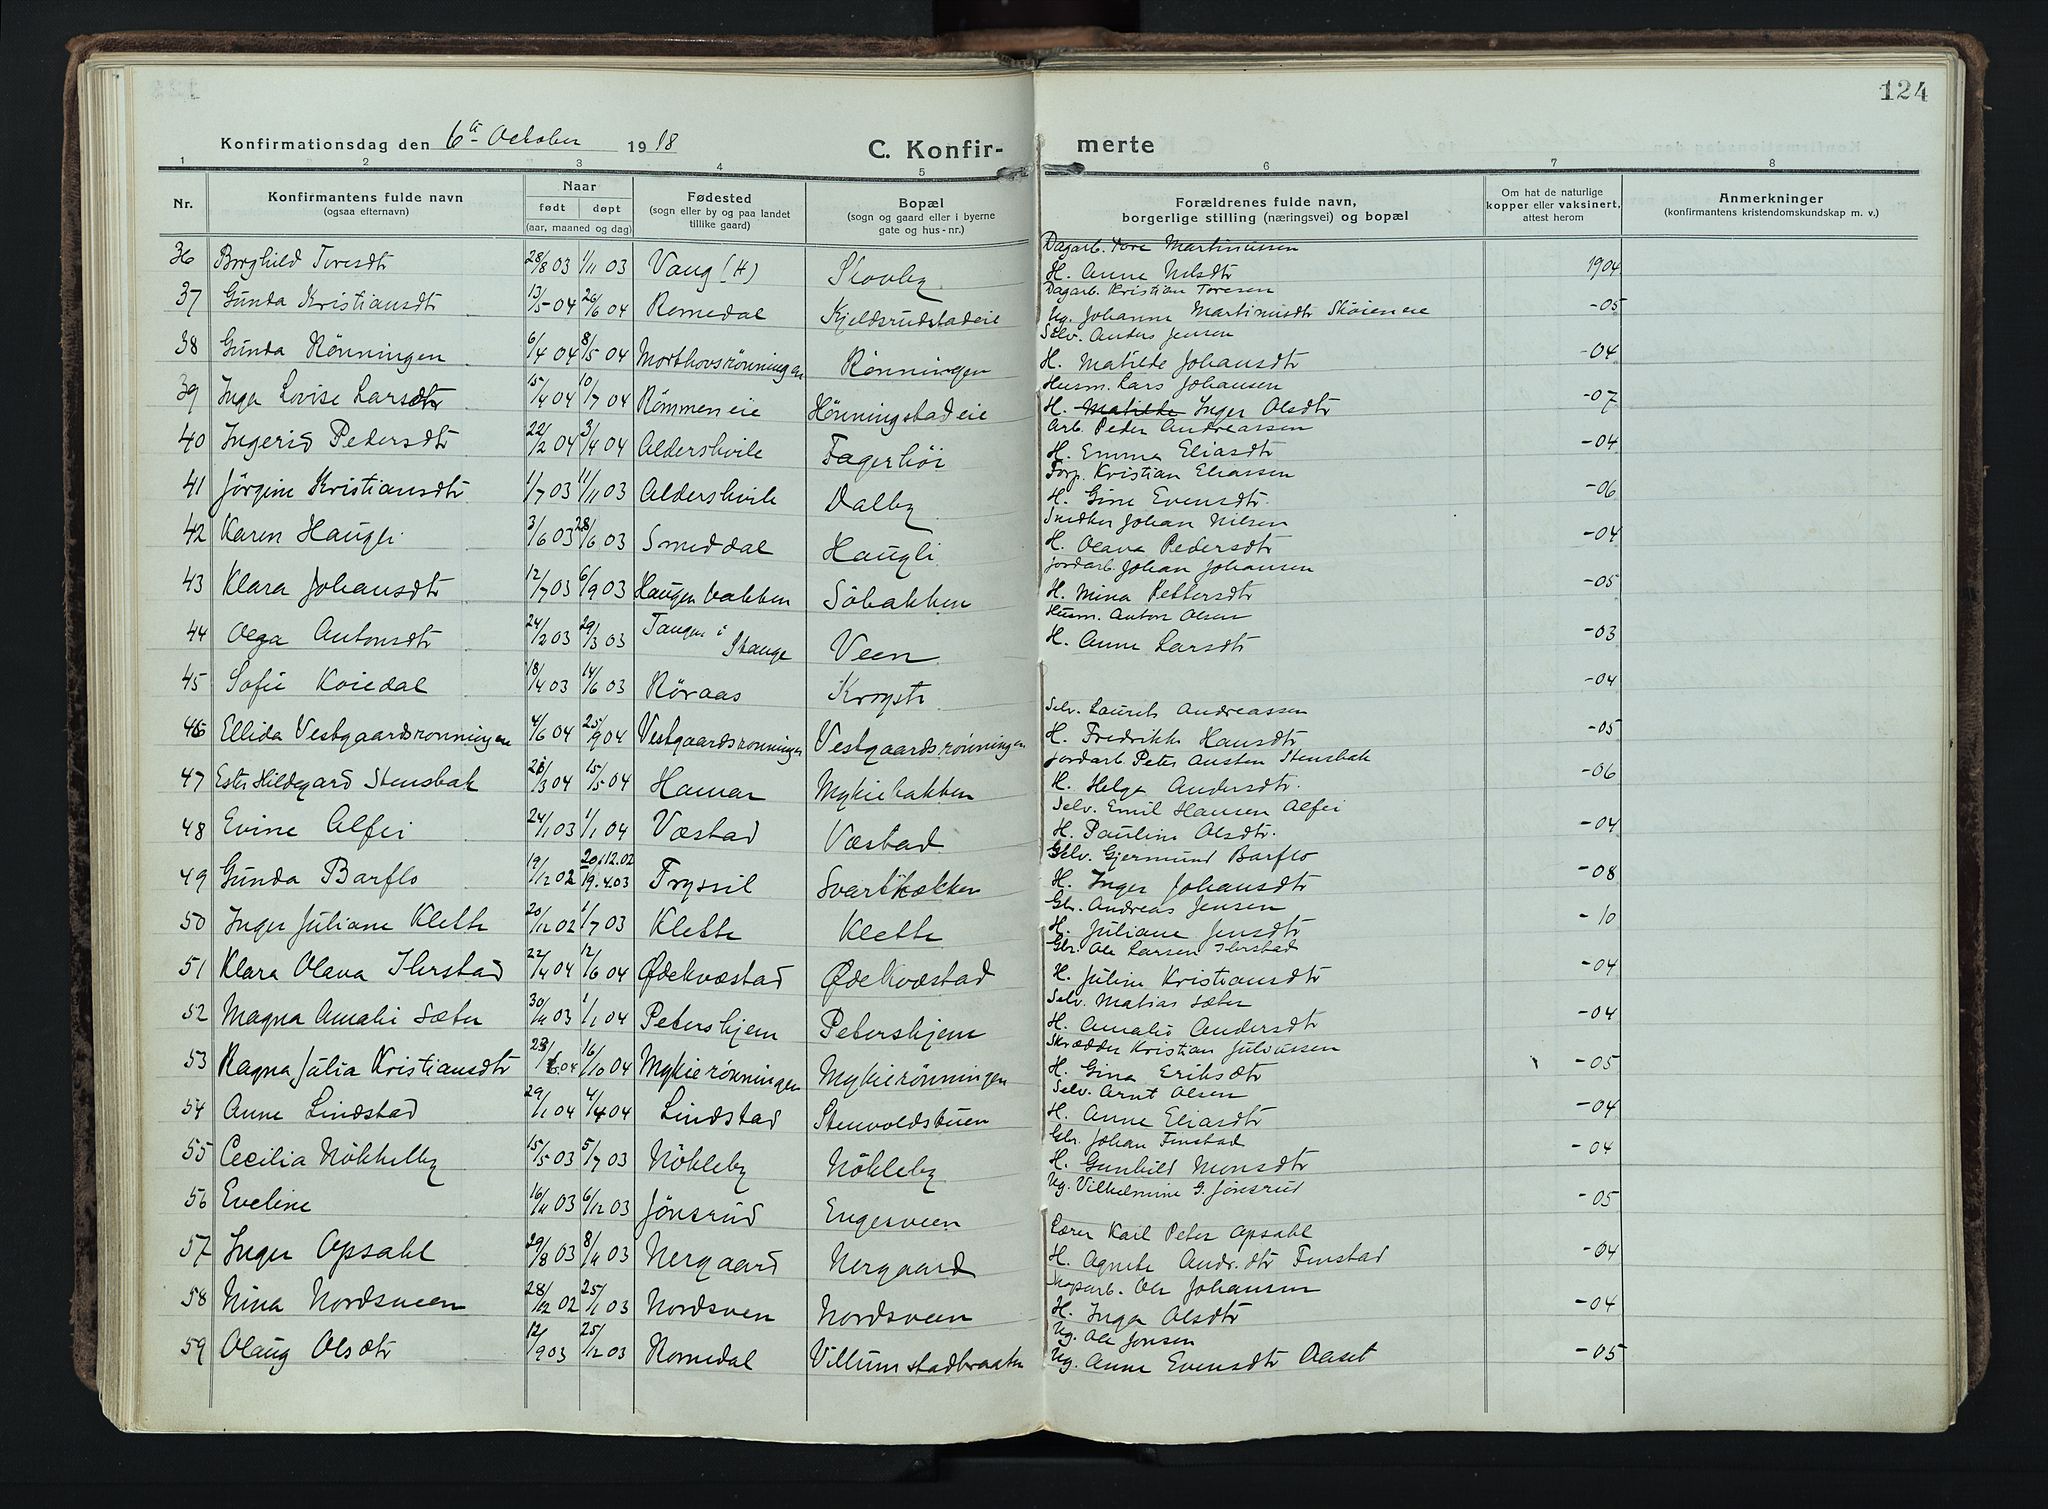 124
Konfirmationsdag den 6te October 1918
C. Konfirmerte
1 2 3 4 5 6 7 8
Nr. | Konfirmantens fulde navn (ogsaa efternavn) | Naar født døpt (aar, maaned og dag) | Fødested (sogn eller by og paa landet tillike gaard) | Bopæl (sogn og gaard eller i byerne gate og hus-nr.) | Forældrenes fulde navn, borgerlige stilling (næringsvei) og bopæl | Om hat de naturlige kopper eller vaksinert, attest herom | Anmerkninger (konfirmantens kristendomskundskap m. v.)
36 Borghild Toresdtr 28/8 03 1/11 03 Vang (H) Skovby Dagarb. Tore Martinussen
H. Anne Nilsdtr 1904
37 Gunda Kristiansdtr 13/5 04 26/6 04 Romedal Kjeldsrudstadeie Dagarb. Kristian Toresen
Ug. Johanne Martinusdtr Skøieneie -05
38 Gunda Rønningen 6/4 04 8/5 04 Morthovsrønningen Rønningen Selv. Anders Jensen
H. Matilde Johansdtr -04
39 Inga Lovise Larsdtr 15/4 04 10/7 04 Rømmeneie Hønningstadeie Husm. Lars Johansen
H. Matilde Inger Olsdtr -07
40 Ingerid Pedersdtr 22/2 04 3/4 04 Aldershvile Fagerhöi Arb. Peder Andreassen
H. Emma Eliasdtr -04
41 Jørgine Kristiansdtr 1/7 03 1/11 03 Aldershvile Dalby Forp. Kristian Eliassen
H. Gine Evensdtr. -06
42 Karen Haugli 3/6 03 28/6 03 Smeddal Haugli Snedker Johan Nilsen
H. Olava Pedersdtr -04
43 Klara Johansdtr 12/7 03 6/9 03 Haugenbakken Söbakken Jordarb. Johan Johansen
H. Mina Pettersdtr -05
44 Olga Antonsdtr 24/2 03 29/3 03 Tangen i Stange Veen Husm. Anton Olsen
H. Anne Larsdtr -03
45 Sofie Koiedal 18/4 03 14/6 03 Røraas -04
46 Ellida Vestgaardsrønningen 4/6 04 25/9 04 Vestgaardsrønningen Vestgaardsrønningen Selv. Laurits Andreassen
H. Fredrikke Hansdtr -05
47 Ester Hildegard Stensbak /3 04 15/5 04 Hamar Mykiebakken Jordarb. Peter Austen Stensbak
H. Helga Andersdtr. -06
48 Evine Alfei 24/1 03 1/1 04 Væstad Væstad Selv. Emil Hansen Alfei
H. Pauline Olsdtr. -04
49 Gunda Barflo 19/12 02 20.12.02 19.4.03 Tryssil Svartbækken Selv. Gjermund Barflo
H. Inger Johansdtr -08
50 Inger Juliane Klette 20/12 02 1/7 03 Klette Klette Gbr. Andreas Jensen
H. Juliane Jensdtr -10
51 Klara Olava Ilerstad 22/4 04 12/6 04 Ødekvæstad Ødekvæstad Gbr. Ole Larsen Ilerstad
H. Juline Kristiansdtr -04
52 Magna Amalie Sæter 30/11 03 1/1 04 Petershjem Petershjem Selv. Matias Sæter
H. Amalie Andersdtr -04
53 Ragna Julia Kristiansdtr 04 16/10 04 Mykierønningen Mykierønningen Skrædder Kristian Juliussen
H. Gina Eriksdtr -05
54 Anne Lindstad 29/1 04 4/4 04 Lindstad Stenvoldstuen Selv. Arnt Olsen
H. Anne Eliasdtr -04
55 Cecilia Nökkelby 15/5 03 5/7 03 Nökleby Nökleby Gbr. Johan Finstad
H. Gunhild Monsdtr -04
56 Eveline 16/11 03 6/12 03 Jønsrud Engesveen Ug. Vilhelmine G. Jønsrud -05
57 Inger Opsahl 29/8 03 8/11 03 Nergaard Nergaard Lærer Karl Peter Opsahl
H. Agnete Andr.dtr Finstad -04
58 Nina Nordsveen 28/12 02 25/1 03 Nordsven Nordsveen Skogarb. Ole Johansen
H. Inga Olsdtr -04
59 Olaug Olsdtr 12/9 03 25/12 03 Romedal Villumstadbraaten Ug. Ole Jonsen
Ug. Anne Evensdtr Aaset -05